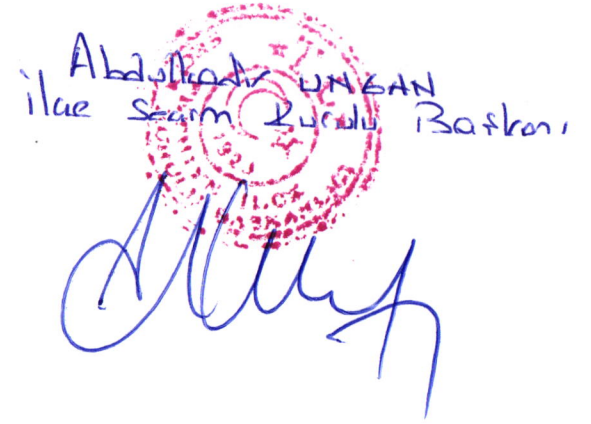 Abdulkadir UNGAN
ilçe Seçim Kurulu Başkanı
İLÇE